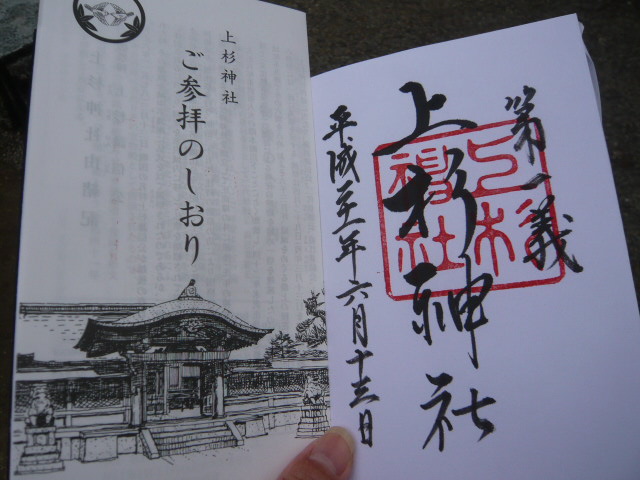 上杉神社
ご参拝のしおり
第一義
上杉神社
上杉
神社
平成二十一年六月十三日